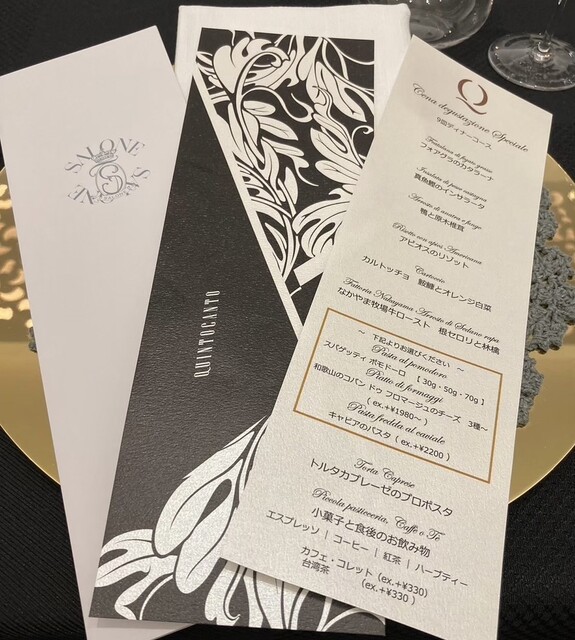 SALONE
QUINTOCANTO
Q
Cena degustazione Speciale
9皿ディナーコース
フォアグラのカタラーナ
真魚鰹のインサラータ
Arrosto di anatra e fungo
鴨と原木椎茸
Risotto con apios Americana
アピオスのリゾット
Cartoccio
カルトッチョ 鮟鱇とオレンジ白菜
Fattoria Nakayama Arrosto di Sedano rapa
なかやま牧場牛ロースト 根セロリと林檎
~ 下記よりお選びください ~
Pasta al pomodoro
スパゲッティ ポモドーロ 【 30g・50g・70g 】
Piatto di formaggi
和歌山のコパン ドゥ フロマージュのチーズ 3種~
( ex.+¥1980~ )
Pasta fredda al caviale
キャビアのパスタ ( ex.+¥2200 )
Torta Caprese
トルタカプレーゼのプロポスタ
Piccola pasticceria, Caffe o Te
小菓子と食後のお飲み物
エスプレッソ | コーヒー | 紅茶 | ハーブティー
カフェ・コレット (ex.+¥330)
台湾茶 (ex.+¥330 )